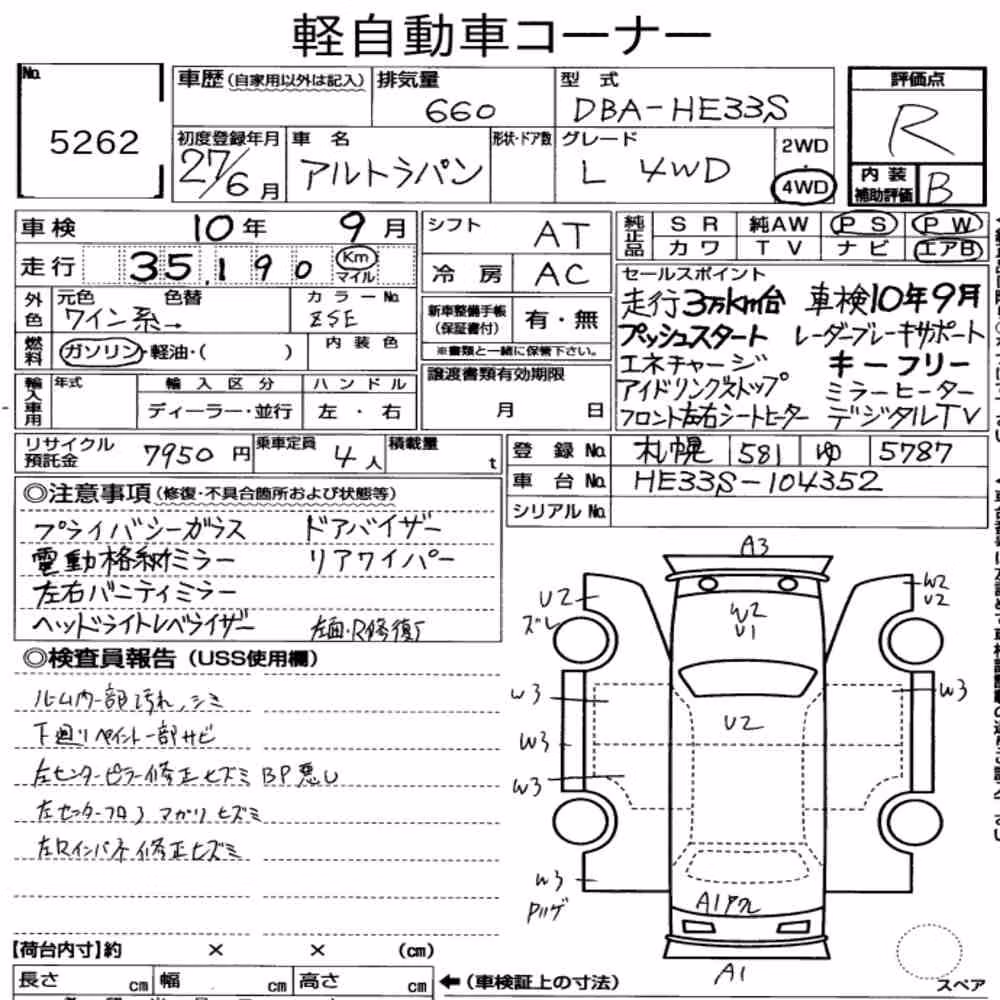 軽自動車コーナー
No.
5262
車歴 (自家用以外は記入)
排気量
660
型式
DBA-HE33S
評価点
R
初度登録年月
27/6月
車名
アルトラパン
形状・ドア数
グレード
L 4WD
2WD
・
4WD
内装
補助評価
B
車検 10年 9月
走行 35,190 Km マイル
外色
元色 色替
ワイン系→
カラーNo.
ZSE
燃料
ガソリン・軽油・( )
内装色
輸入車用
年式
輸入区分
ディーラー・並行
ハンドル
左・右
シフト AT
冷房 AC
新車整備手帳
(保証書付)
有・無
※書類と一緒に保管下さい。
譲渡書類有効期限
月 日
純正品
SR 純AW PS PW
カワ TV ナビ エアB
セールスポイント
走行3万Km台 車検10年9月
プッシュスタート レーダーブレーキサポート
エネチャージ キーフリー
アイドリングストップ ミラーヒーター
フロント左右シートヒーター デジタルTV
リサイクル
預託金
7950円
乗車定員
4人
積載量
t
登録No. 札幌 581 ゆ 5787
車台No. HE33S-104352
シリアルNo.
◎注意事項(修復・不具合箇所および状態等)
プライバシーガラス ドアバイザー
電動格納ミラー リアワイパー
左右バニティミラー
ヘッドライトレベライザー 左面・R修復
◎検査員報告(USS使用欄)
ルーム内一部汚れ、シミ
下廻りペイント一部サビ
左センターピラー修正ヒズミ BP悪い
左センターフロア マガリヒズミ
左Rインパネ修正ヒズミ
A3
U2
ズレ
W2
U1
W2
U2
W3
W3
U2
W3
W3
W3
Pハゲ
A1アクレ
A1
【荷台内寸】約 × × (cm)
長さ cm 幅 cm 高さ cm
←(車検証上の寸法)
スペア